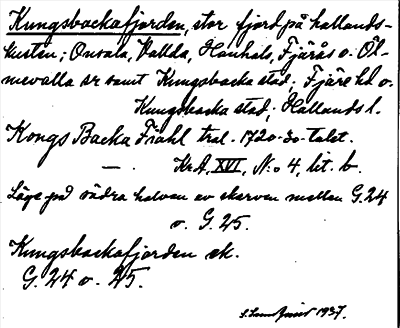 Kungsbackafjorden, stor fjord på hallands-
kusten; Onsala, Vallda, Hanhals, Fjärås o. Öl-
mevalla sr samt Kungsbacka stad; Fjäre hd o.
Kungsbacka stad; Hallands l.
Kongs Backa Fiähl tral. 1720-30-talet.
— KrA XVI, N:o 4, lit. b.
Läge på södra halvan av skarven mellan G.24
o. G.25.
Kungsbackafjorden ek.
G.24 o. 25.
1937.